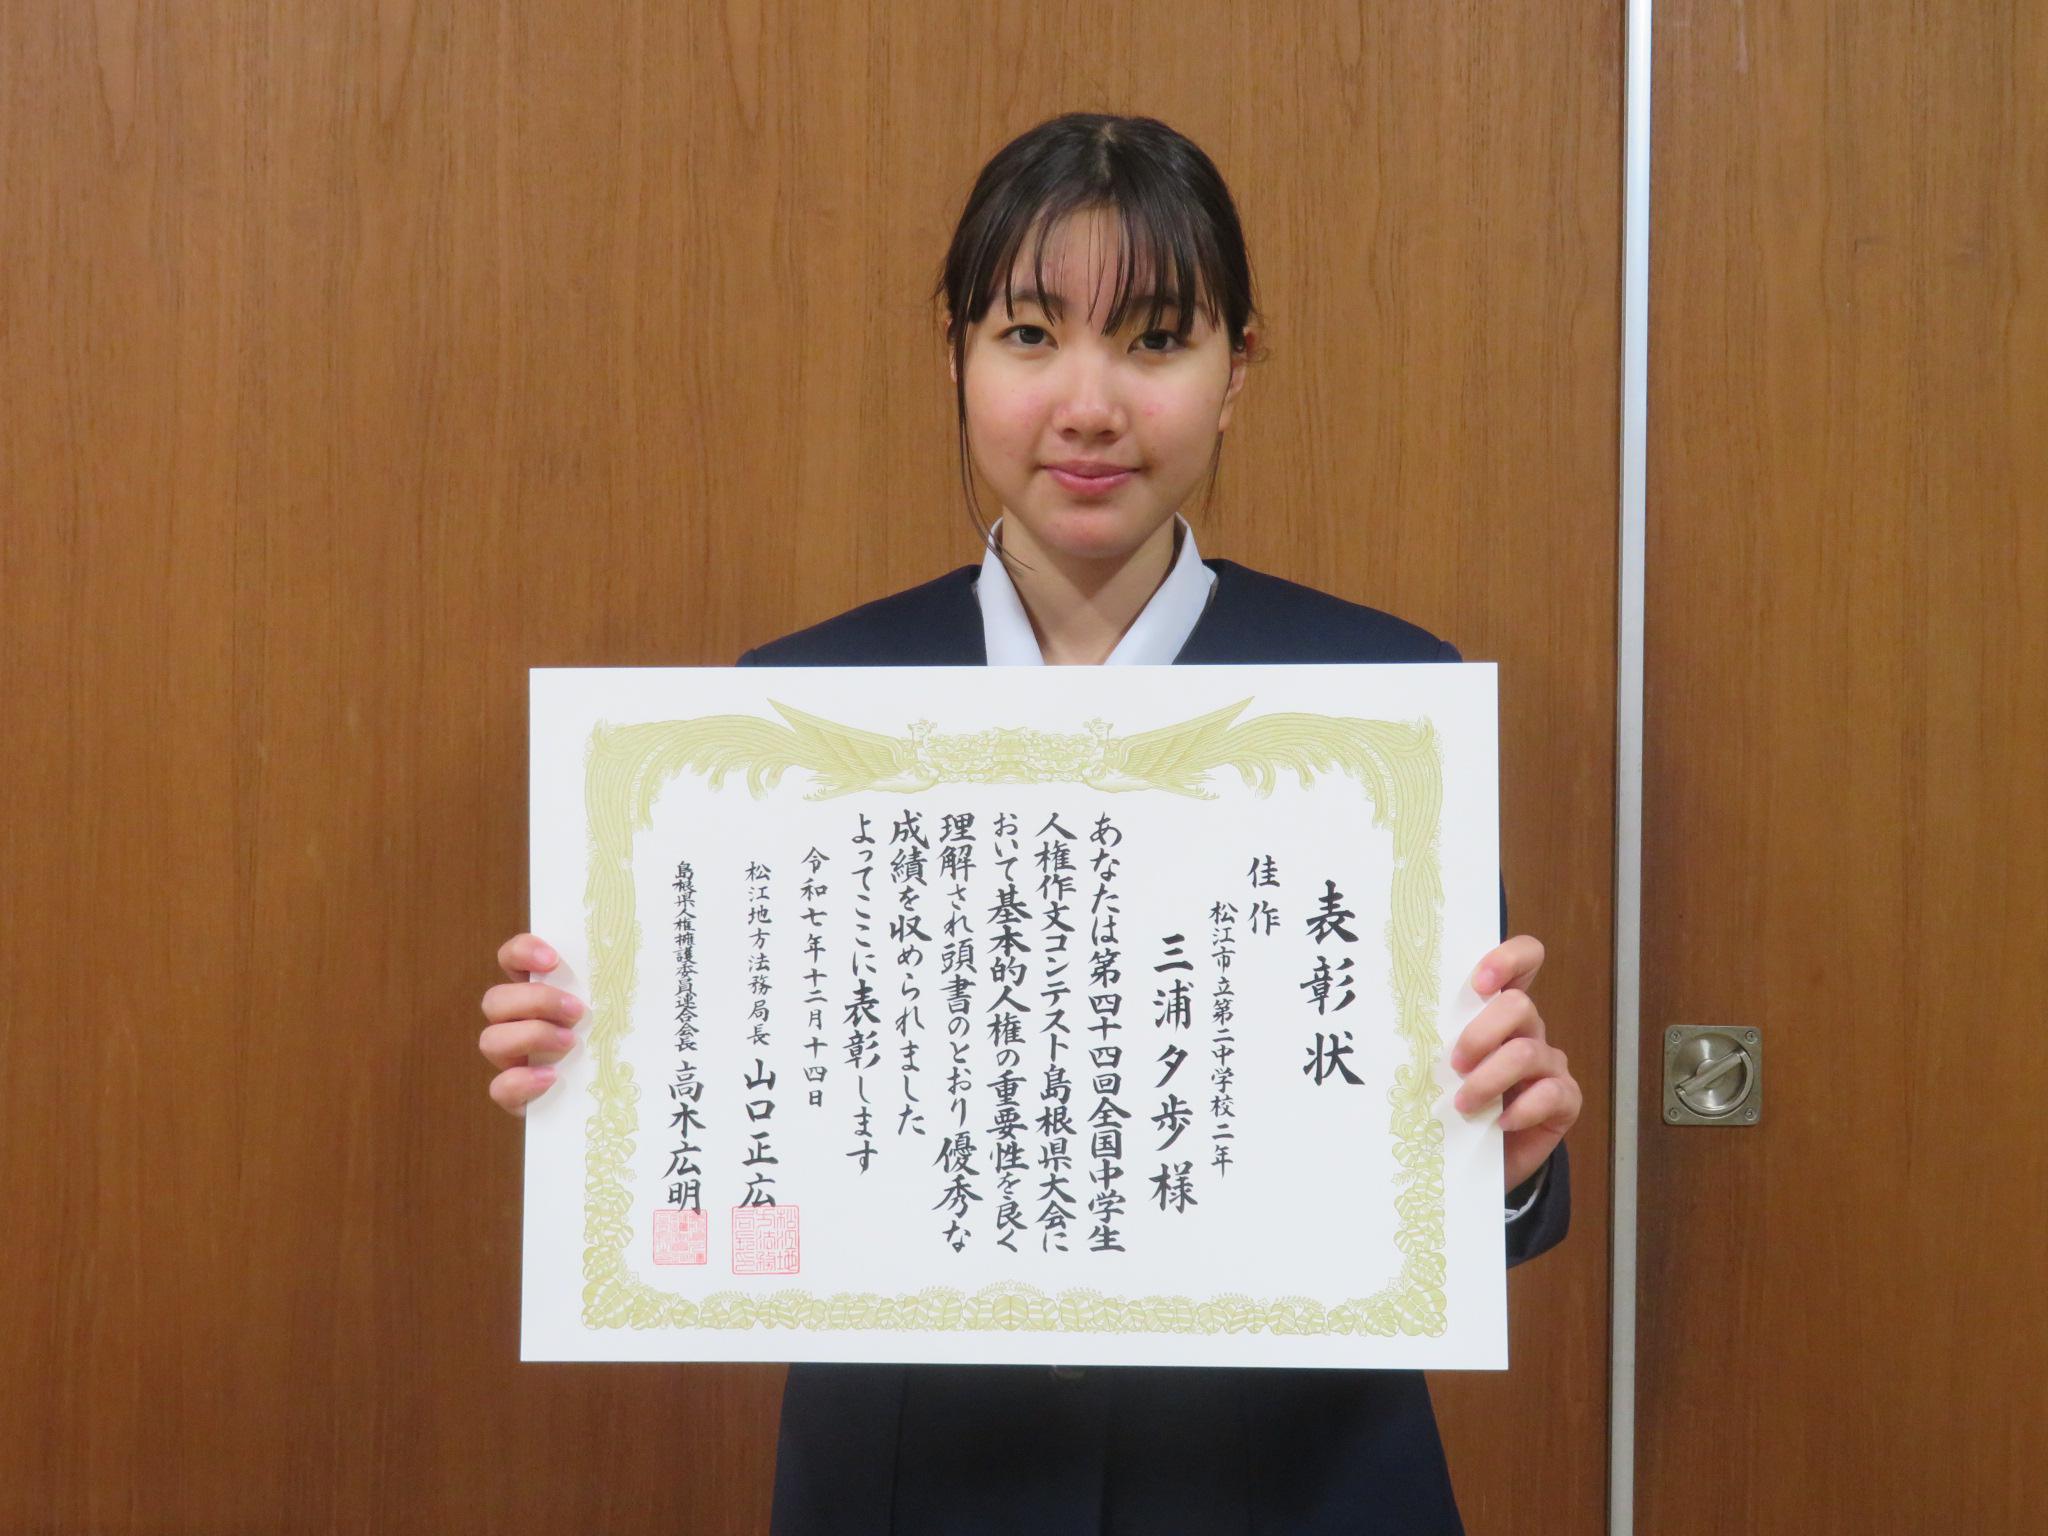 表彰状
佳作
松江市立第二中学校二年
三浦夕歩様
あなたは第四十四回全国中学生
人権作文コンテスト島根県大会に
おいて基本的人権の重要性を良く
理解され頭書のとおり優秀な
成績を収められました
よってここに表彰します
令和七年十二月十四日
松江地方法務局長 山口正広
島根県人権擁護委員連合会長 高木広明